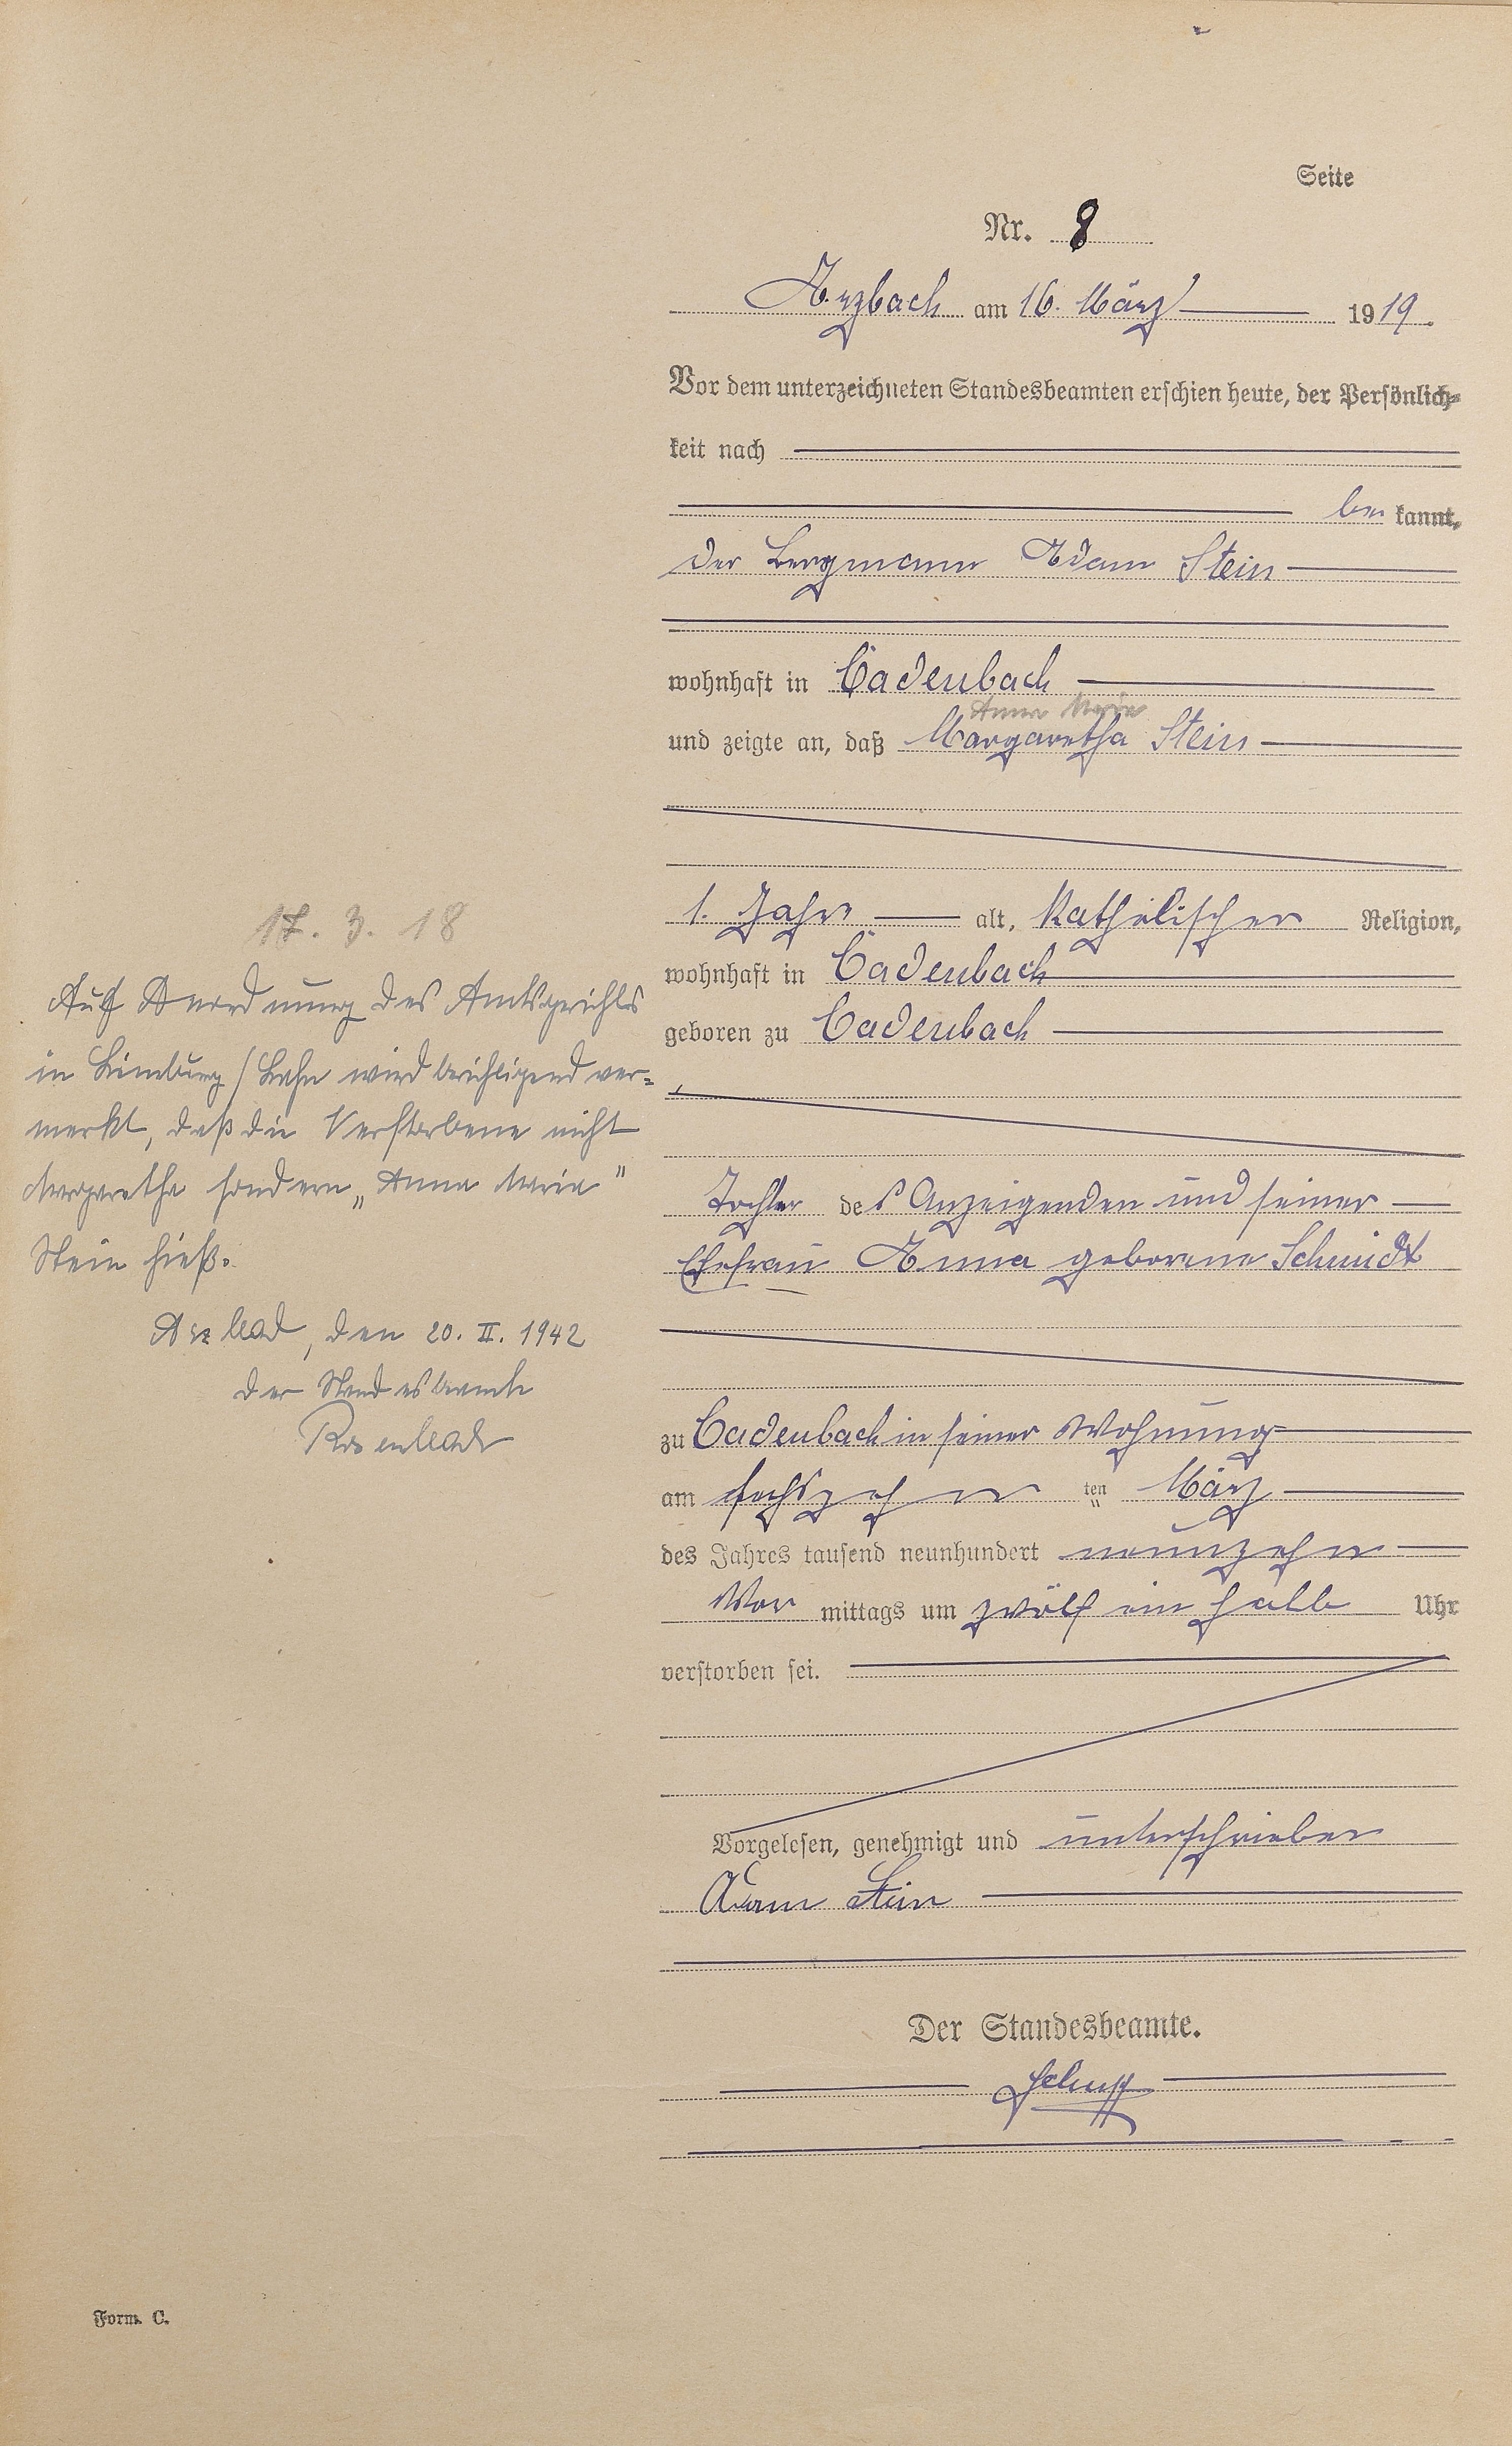 Seite
Nr. 8
Arzbach am 16. März 1919.
Vor dem unterzeichneten Standesbeamten erschien heute, der Persönlich-
keit nach
be kannt,
der Bergmann Adam Stein
wohnhaft in Cadenbach
Anna Maria
und zeigte an, daß Margaretha Stein
1. Jahr alt, Katholischer Religion,
wohnhaft in Cadenbach
geboren zu Cadenbach
Tochter des Anzeigenden und seiner
Ehefrau Anna geborene Schmidt
zu Cadenbach in seiner Wohnung
am sechszehn ten März
des Jahres tausend neunhundert neunzehn
Vor mittags um zwölf ein halb Uhr
verstorben sei.
Vorgelesen, genehmigt und unterschrieben
Adam Stein
Der Standesbeamte.
Schupp
17. 3. 18
Auf Anordnung des Amtsgerichts
in Limburg/Lahn wird berichtigend ver-
merkt, daß die Verstorbene nicht
Margaretha sondern „Anna Maria"
Stein hieß.
Arzbach, den 20. II. 1942
Der Standesbeamte
Form. C.